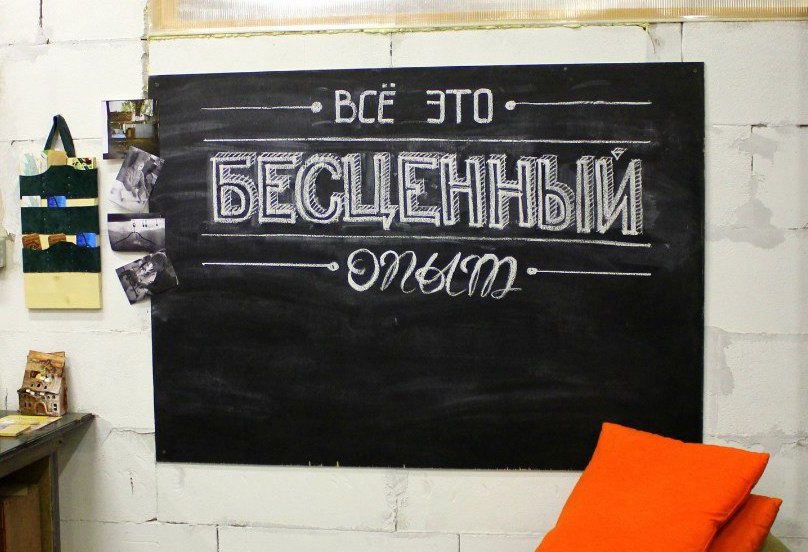 ВСЁ ЭТО
БЕСЦЕННЫЙ
опыт